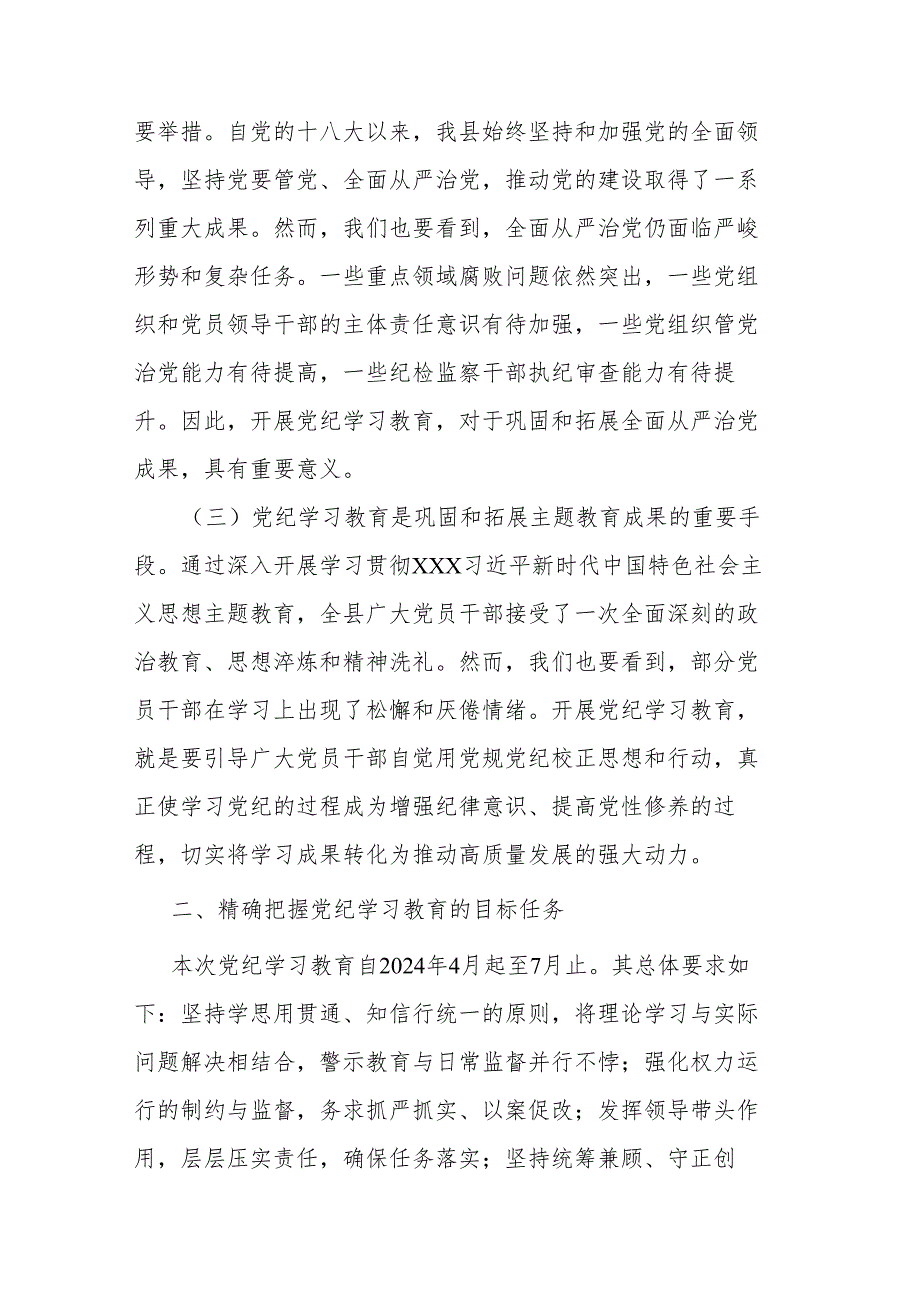 要举措。自党的十八大以来，我县始终坚持和加强党的全面领
导，坚持党要管党、全面从严治党，推动党的建设取得了一系
列重大成果。然而，我们也要看到，全面从严治党仍面临严峻
形势和复杂任务。一些重点领域腐败问题依然突出，一些党组
织和党员领导干部的主体责任意识有待加强，一些党组织管党
治党能力有待提高，一些纪检监察干部执纪审查能力有待提
升。因此，开展党纪学习教育，对于巩固和拓展全面从严治党
成果，具有重要意义。
（三）党纪学习教育是巩固和拓展主题教育成果的重要手
段。通过深入开展学习贯彻XXX习近平新时代中国特色社会主
义思想主题教育，全县广大党员干部接受了一次全面深刻的政
治教育、思想淬炼和精神洗礼。然而，我们也要看到，部分党
员干部在学习上出现了松懈和厌倦情绪。开展党纪学习教育，
就是要引导广大党员干部自觉用党规党纪校正思想和行动，真
正使学习党纪的过程成为增强纪律意识、提高党性修养的过
程，切实将学习成果转化为推动高质量发展的强大动力。
二、精确把握党纪学习教育的目标任务
本次党纪学习教育自2024年4月起至7月止。其总体要求如
下：坚持学思用贯通、知信行统一的原则，将理论学习与实际
问题解决相结合，警示教育与日常监督并行不悖；强化权力运
行的制约与监督，务求抓严抓实、以案促改；发挥领导带头作
用，层层压实责任，确保任务落实；坚持统筹兼顾、守正创